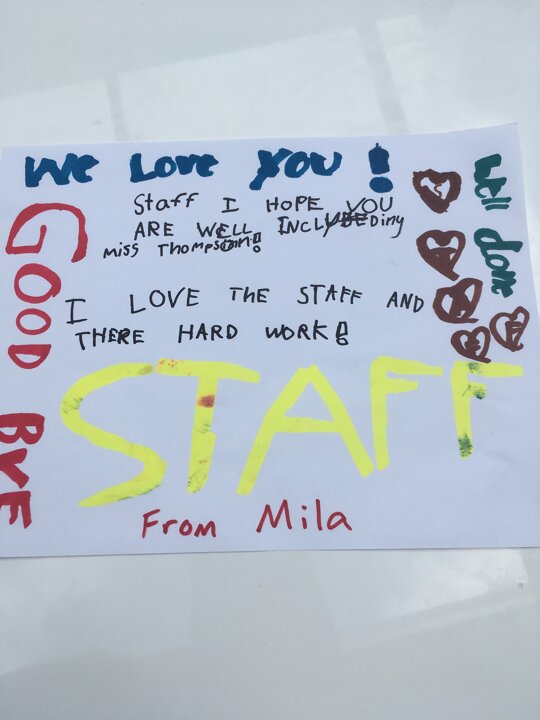 We Love YOU!
Staff I HOPE YOU
ARE WELL INCLUDEDiny
Miss Thompson!
I LOVE THE STAFF AND
THERE HARD WORK!
STAFF
From Mila
GOOD BYE
Well done